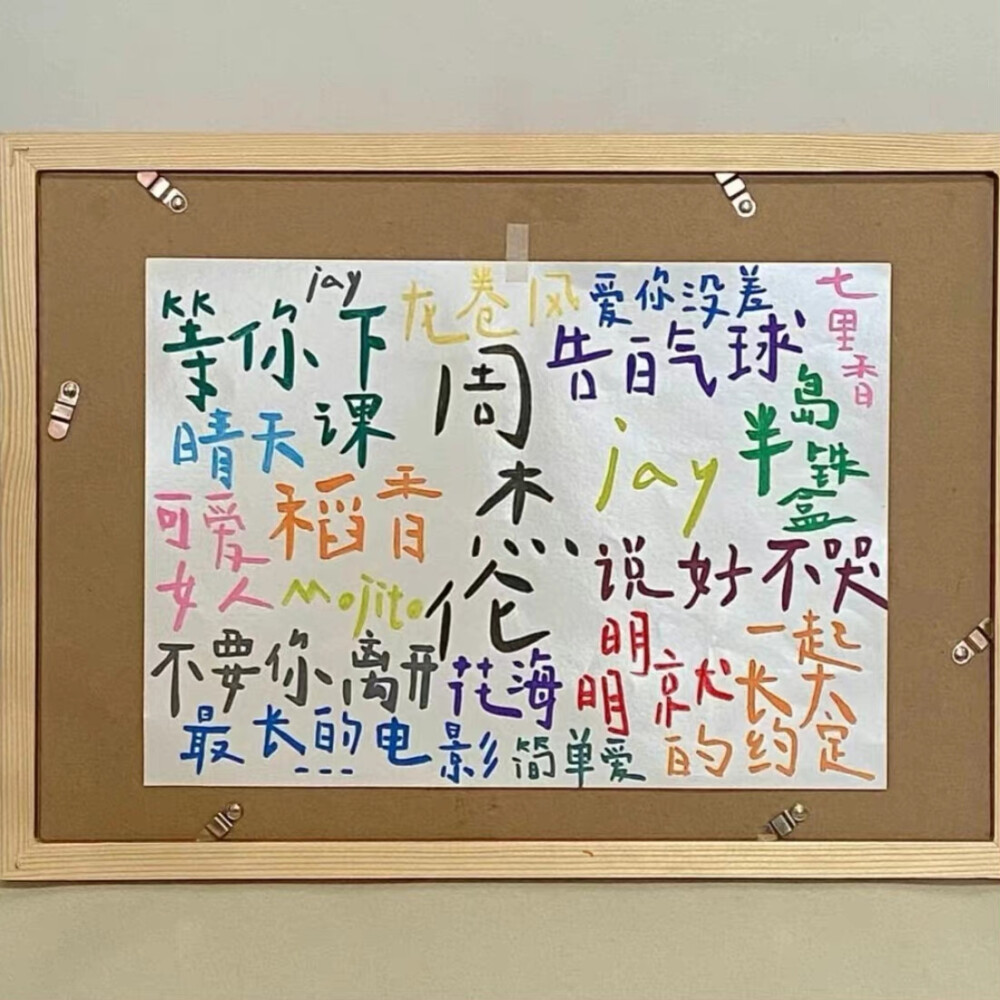 jay
等你下课
龙卷风
爱你没差
七里香
周杰伦
告白气球
晴天
jay
半岛铁盒
可爱女人
稻香
Mojito
说好不哭
不要你离开
花海
明明就
一起长大的约定
最长的电影
---
简单爱